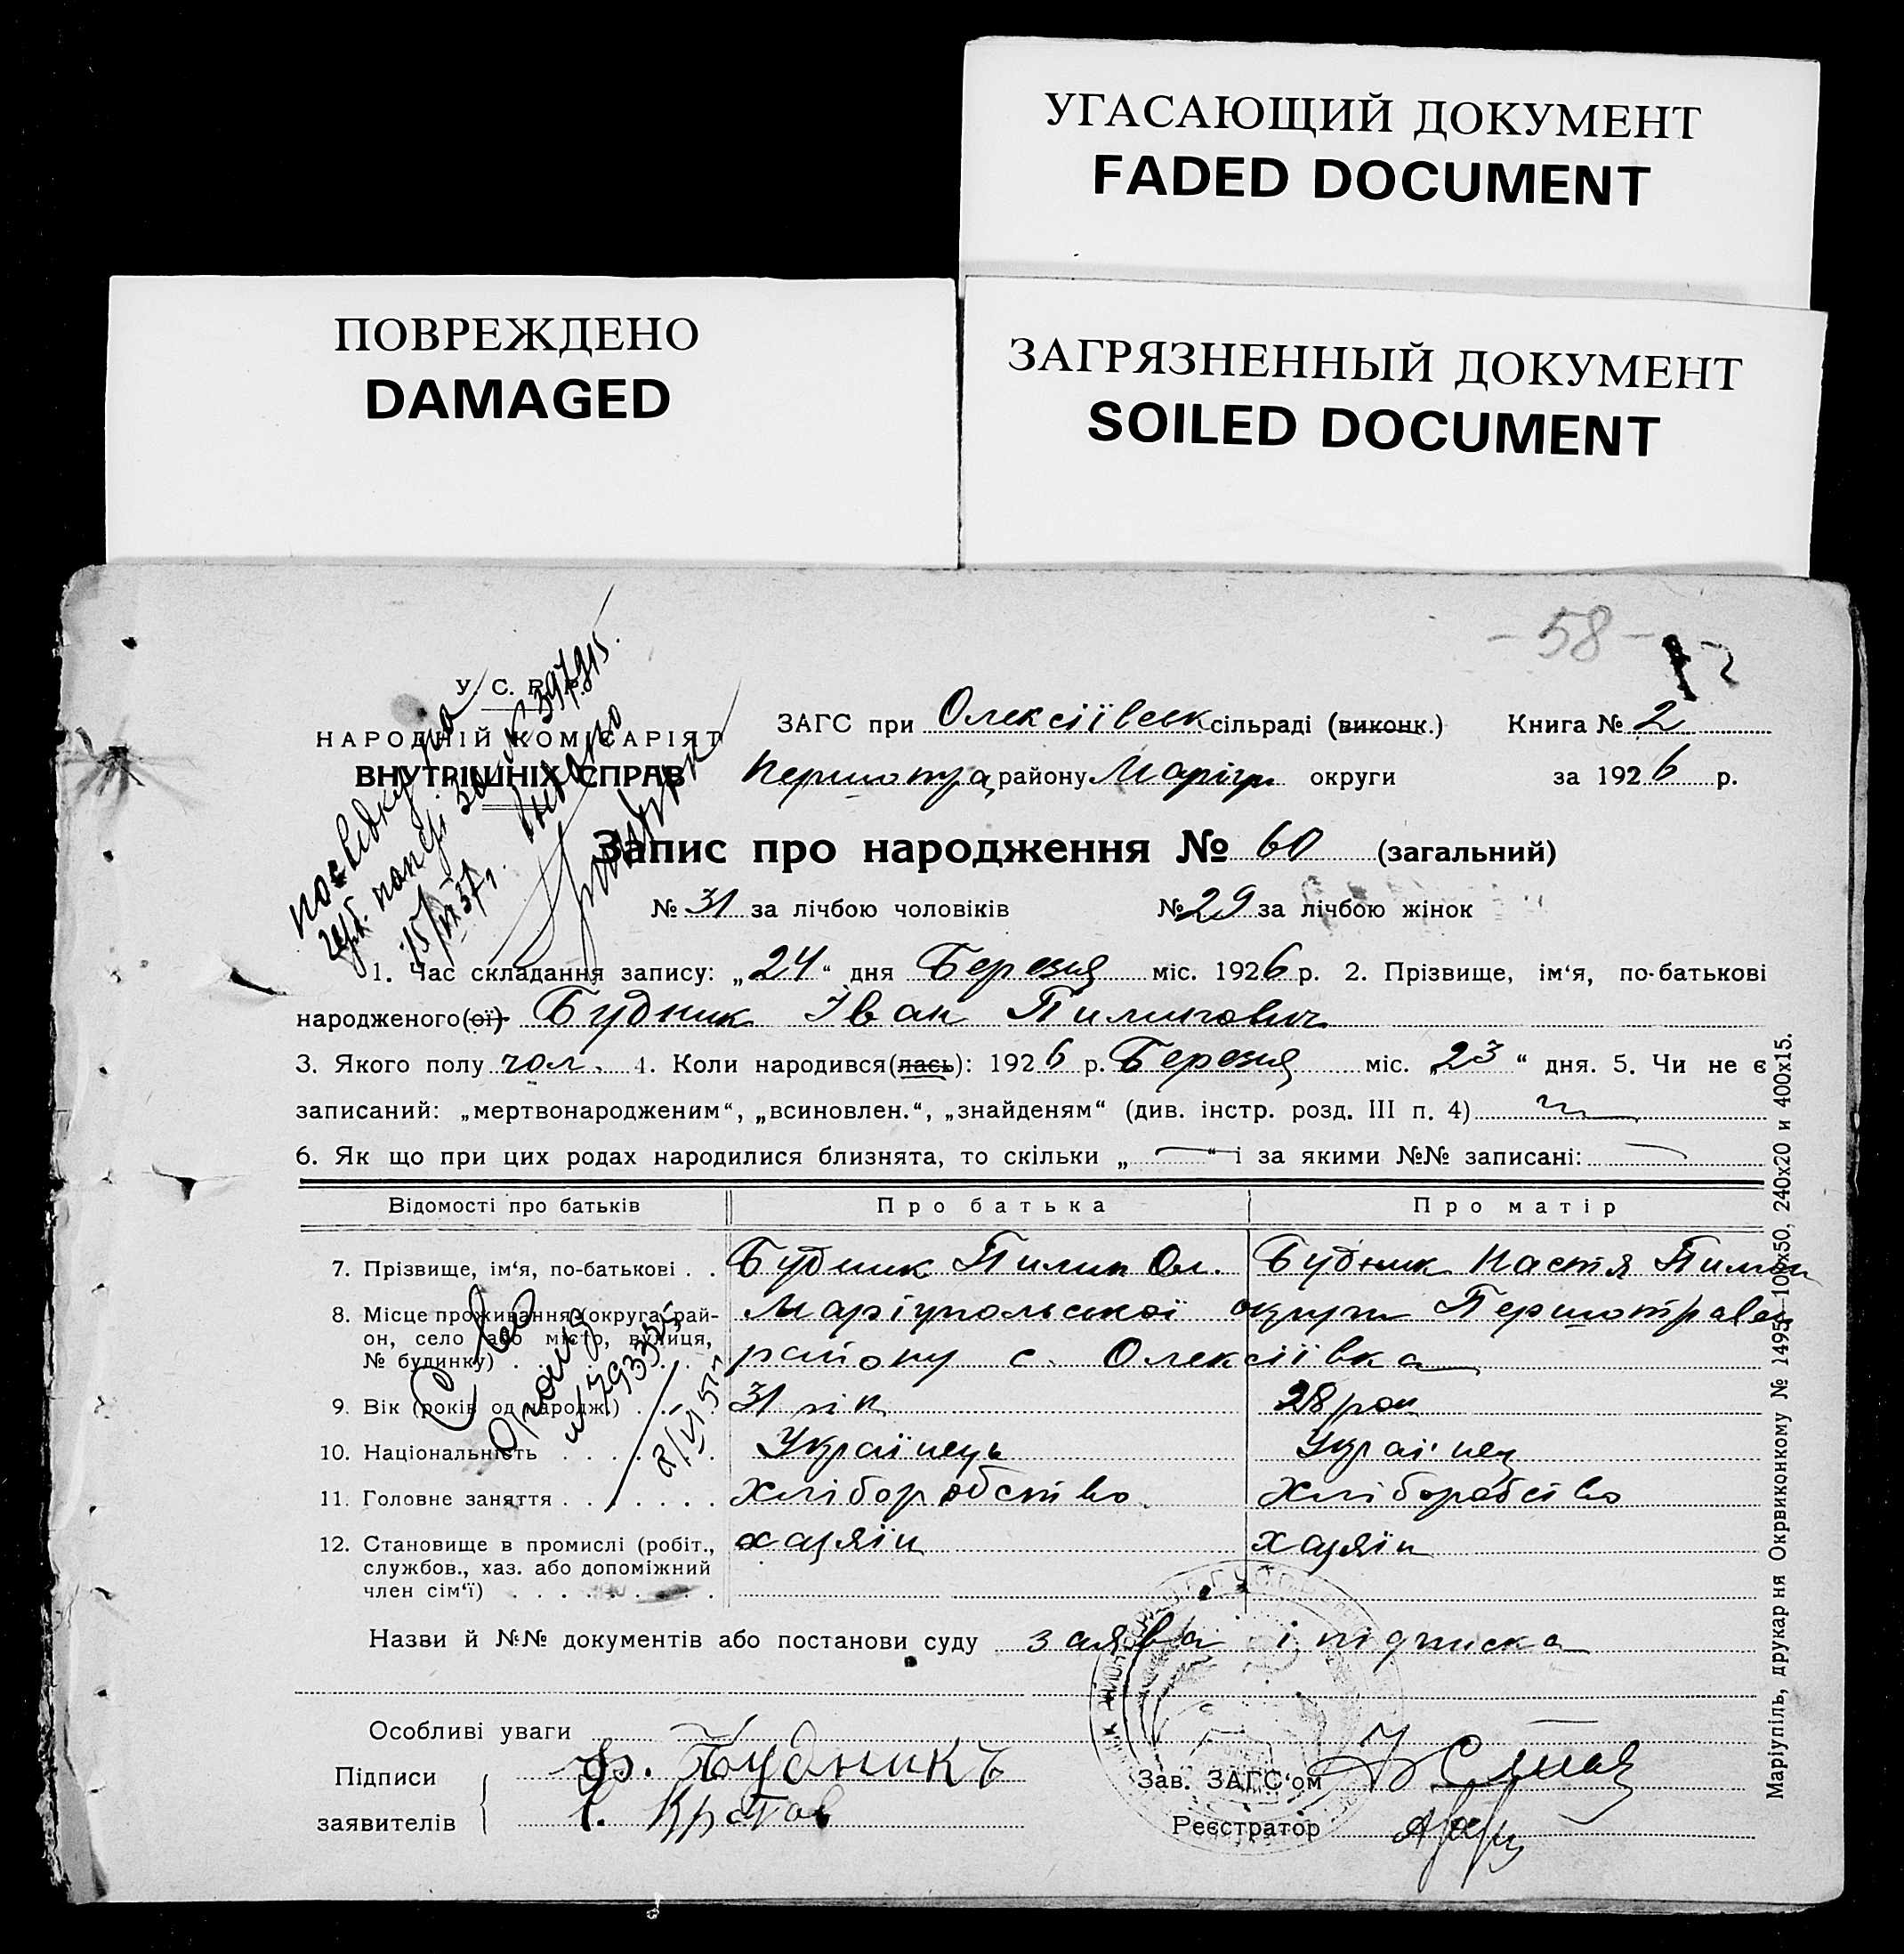 УГАСАЮЩИЙ ДОКУМЕНТ
FADED DOCUMENT
ПОВРЕЖДЕНО
DAMAGED
ЗАГРЯЗНЕННЫЙ ДОКУМЕНТ
SOILED DOCUMENT
- 58 -
У. С. Р. Р.
НАРОДНІЙ КОМІСАРІЯТ
ВНУТРІШНІХ СПРАВ
ЗАГС при Олексіївськ сільраді (виконк.) Книга № 2
Першотра району Маріуп. округи за 1926 р.
посвідку на
15/VI 37
Запис про народження № 60 (загальний)
№ 31 за лічбою чоловіків № 29 за лічбою жінок
1. Час складання запису: „24“ дня Березня міс. 1926 р. 2. Прізвище, ім‘я, по-батькові
народженого(ої) Будник Іван Пилипович
3. Якого полу чол. 4. Коли народився(лась): 1926 р. Березня міс. „23“ дня. 5. Чи не є
записаний: „мертвонародженим“, „всиновлен.“, „знайденям“ (див. інстр. розд. III п. 4) ні
6. Як що при цих родах народилися близнята, то скільки „—“ і за якими №№ записані: —
Відомості про батьків Про батька Про матір
7. Прізвище, ім‘я, по-батькові . . Будник Пилип Ол. Будник Настя Пилип
8. Місце проживання (округа, рай- Маріупольської округи Першотравен
он, село або місто, вулиця, району с. Олексіївка
№ будинку) . . .
9. Вік (років од народж.) . . . . 31 рік 28 рок
10. Національність . . . . . . . Українець Украінец
11. Головне заняття . . . . . . . Хліборобство Хліборобство
12. Становище в промислі (робіт., хазяїн хазяїн
службов., хаз. або допоміжний
член сім‘ї) . . . . . . . . .
Назви й №№ документів або постанови суду заява і підписка
Особливі уваги —
Підписи Ф. Будникъ Зав. ЗАГС‘ом
заявителів Реєстратор
Маріупіль, друкарня Окрвиконкому № 1495—100х50, 240х20 и 400х15.